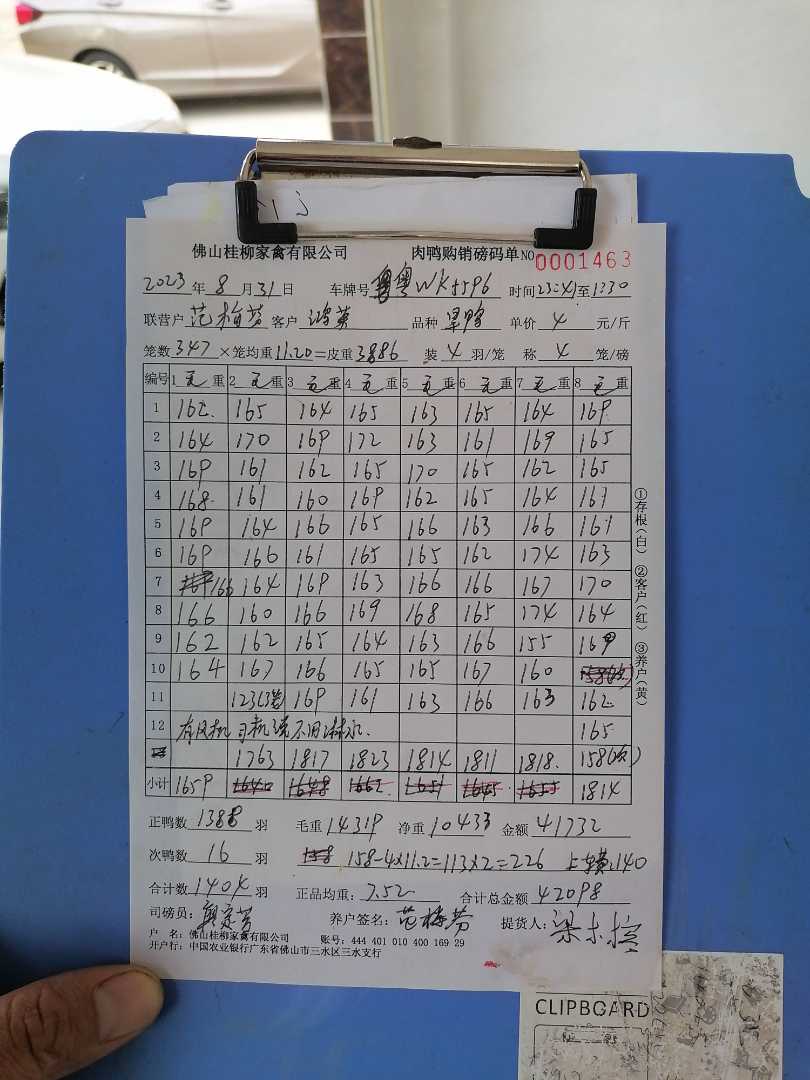 佛山桂柳家禽有限公司 肉鸭购销磅码单 NO 0001463
2023 年 8 月 31 日 车牌号 粤WK5596 时间 23:41 至 1:30
联营户 范梅芳 客户 鸿英 品种 单价 4 元/斤
笼数 347 × 笼均重 11.20 = 皮重 3886 装 4 羽/笼 称 4 笼/磅
编号 1 毛重 2 毛重 3 毛重 4 毛重 5 毛重 6 毛重 7 毛重 8 毛重
1 162 165 164 165 163 165 164 169
2 164 170 169 172 163 161 169 165
3 169 161 162 165 170 165 162 165
4 168 161 160 169 162 165 164 161
5 169 164 166 165 166 163 166 161
6 169 166 161 165 165 162 174 163
7 166 164 169 163 166 166 167 170
8 166 160 166 169 168 165 174 164
9 162 162 165 164 163 166 155 169
10 164 167 166 165 165 167 160
11 123(3笼) 169 161 163 166 163 162
12 有风机 司机说不用淋水. 165
1763 1817 1823 1814 1811 1818. 158(次)
小计 1659 1640 1648 1662 1651 1645 1655 1814
正鸭数 1388 羽 毛重 14319 净重 10433 金额 41732
次鸭数 16 羽 158 158-4×11.2=113×2=226 140
合计数 1404 羽 正品均重: 7.52 合计总金额 42098
司磅员: 养户签名: 范梅芳 提货人:
户 名: 佛山桂柳家禽有限公司 账号: 444 401 010 400 169 29
开户行: 中国农业银行广东省佛山市三水区三水支行
①存根(白) ②客户(红) ③养户(黄)
CLIPBOARD